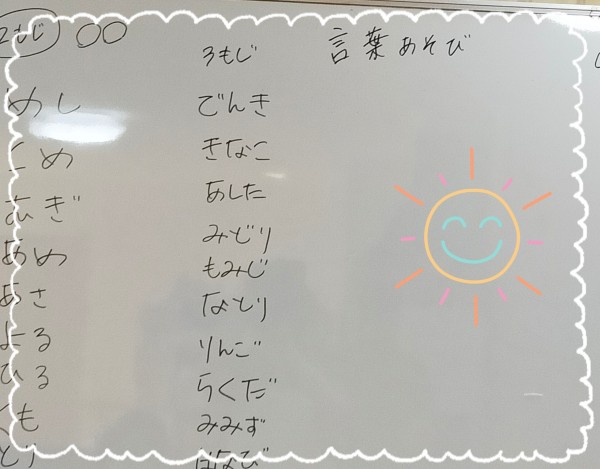 2もじ ○○
めし
こめ
むぎ
あめ
あさ
よる
ひる
くも
とり
3もじ
でんき
きなこ
あした
みどり
もみじ
なとり
りんご
らくだ
みみず
はなび
言葉あそび